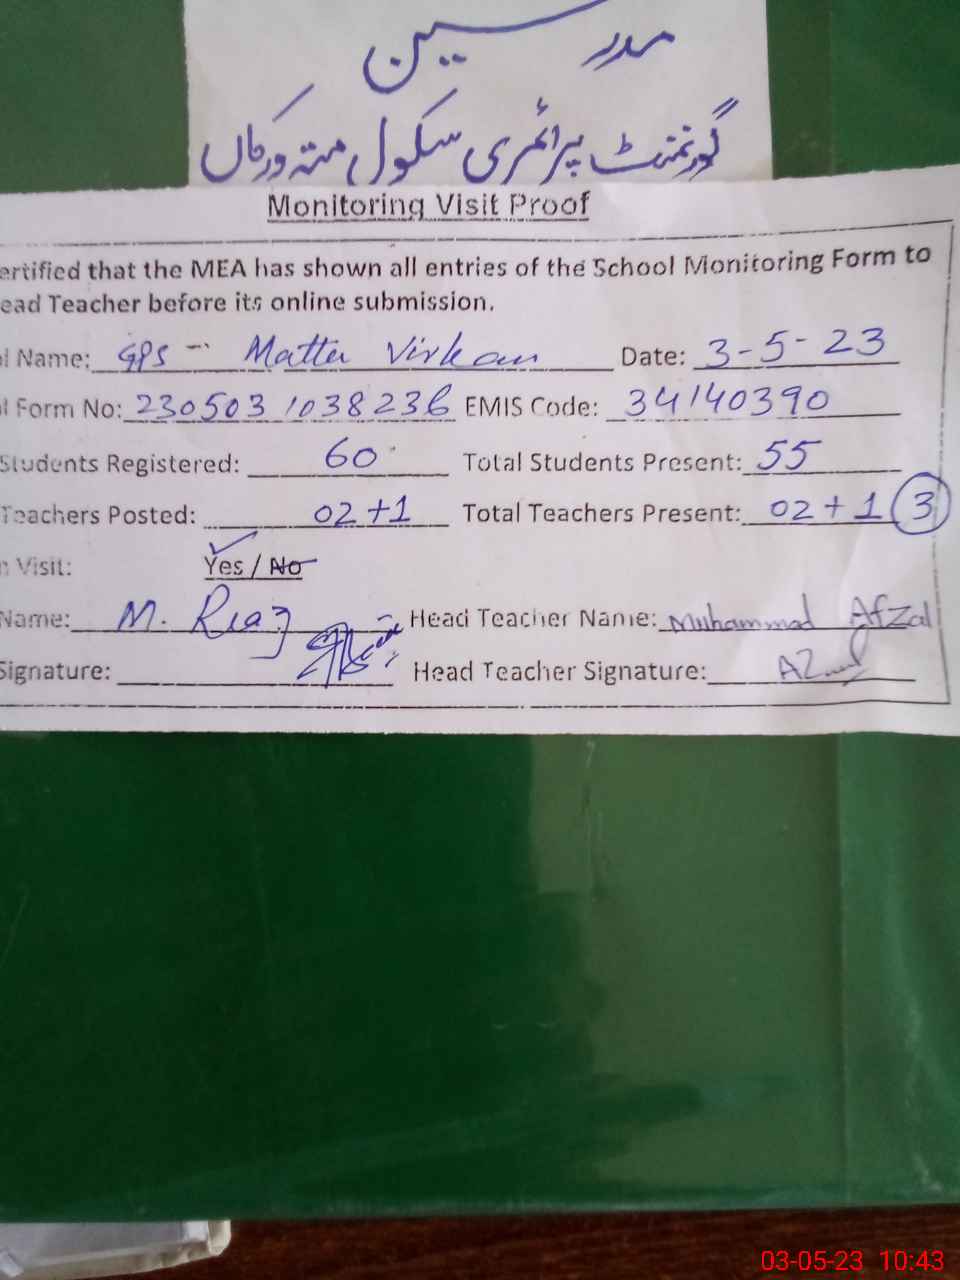 مدرسین
گورنمنٹ پرائمری سکول متہ ورکاں
Monitoring Visit Proof
ertified that the MEA has shown all entries of the School Monitoring Form to
ead Teacher before its online submission.
l Name: GPS - Matta Virkan Date: 3-5-23
l Form No: 230503 1038236 EMIS Code: 34140390
Students Registered: 60 Total Students Present: 55
Teachers Posted: 02+1 Total Teachers Present: 02+1 3
n Visit: Yes / No
Name: M. Riaz Head Teacher Name: Muhammad Afzal
Signature: Head Teacher Signature:
03-05-23 10:43